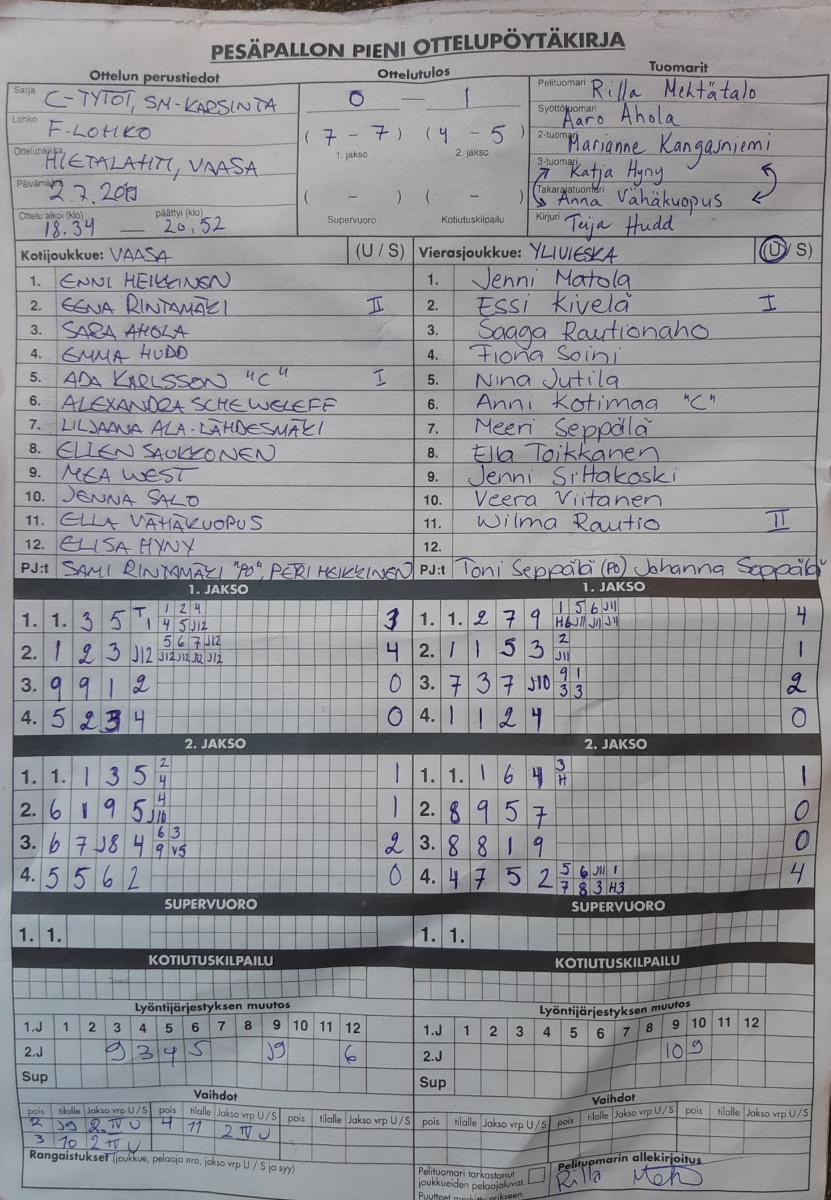 PESÄPALLON PIENI OTTELUPÖYTÄKIRJA
Ottelun perustiedot
Sarja C-TYTÖT, SM-KARSINTA
Lohko F-LOHKO
Ottelupaikka HIETALAHTI, VAASA
Päivämäärä 2.7.
Ottelu alkoi (klo) päättyi (klo)
18.34 — 20.52
Ottelutulos
0 — 1
(7 - 7) (4 - 5)
1. jakso 2. jakso
( - ) ( - )
Supervuoro Kotiutuskilpailu
Tuomarit
Pelituomari Rilla Mehtätalo
Syöttötuomari Aaro Ahola
2-tuomari Marianne Kangasniemi
3-tuomari Katja Hyny
Takarajatuomari Anna Vähäkuopus
Kirjuri Teija Hudd
Kotijoukkue: VAASA (U / S)
1. ENNI HEIKKINEN
2. EENA RINTAMÄKI II
3. SARA AHOLA
4. EMMA HUDD
5. ADA KARLSSON "C" I
6. ALEXANDRA SCHEWELEFF
7. LILJAANA ALA-LÄHDESMÄKI
8. ELLEN SAUKKONEN
9. MEA WEST
10. JENNA SALO
11. ELLA VÄHÄKUOPUS
12. ELISA HYNY
PJ:t SAMI RINTAMÄKI "PO", PERI HEIKKINEN
Vierasjoukkue: YLIVIESKA (U / S)
1. Jenni Matola
2. Essi Kivelä I
3. Saaga Rautionaho
4. Fiona Soini
5. Nina Jutila
6. Anni Kotimaa "C"
7. Meeri Seppälä
8. Ella Toikkanen
9. Jenni Siltakoski
10. Veera Viitanen
11. Wilma Rautio II
12.
PJ:t Toni Seppälä (PO) Johanna Seppälä
1. JAKSO
1. 1. 3 5 T1 1 2 4
4 5 J12
3
2. 1 2 3 J12 5 6 7 J12
J12 J12 J12 J12
4
3. 9 9 1 2 0
4. 5 2 3 4 0
1. JAKSO
1. 1. 2 7 9 1 5 6 J11
H6 J11 J11 J11
4
2. 1 1 5 3 2
J11
1
3. 7 3 7 J10 9 1
3 3
2
4. 1 1 2 4 0
2. JAKSO
1. 1. 1 3 5 2
4
1
2. 6 1 9 5 4
J10
1
3. 6 7 J8 4 6 3
9 V5
2
4. 5 5 6 2 0
2. JAKSO
1. 1. 1 6 4 3
H
1
2. 8 9 5 7 0
3. 8 8 1 9 0
4. 4 7 5 2 5 6 J11 1
7 8 3 H3
4
SUPERVUORO
1. 1.
SUPERVUORO
1. 1.
KOTIUTUSKILPAILU
KOTIUTUSKILPAILU
Lyöntijärjestyksen muutos
1.J 1 2 3 4 5 6 7 8 9 10 11 12
2.J 9 3 4 5 J9 6
Sup
Lyöntijärjestyksen muutos
1.J 1 2 3 4 5 6 7 8 9 10 11 12
2.J 10 9
Sup
Vaihdot
pois tilalle Jakso vrp U / S pois tilalle Jakso vrp U / S pois tilalle Jakso vrp U / S
2 J9 2. IV U 4 11 2 IV U
3 10 2 IV U
Vaihdot
pois tilalle Jakso vrp U / S pois tilalle Jakso vrp U / S pois tilalle Jakso vrp U / S
Rangaistukset (joukkue, pelaaja nro, jakso vrp U / S ja syy)
Pelituomari tarkastanut
joukkueiden pelaajaluvat.
Puutteet merkitty erikseen.
Pelituomarin allekirjoitus
Rilla